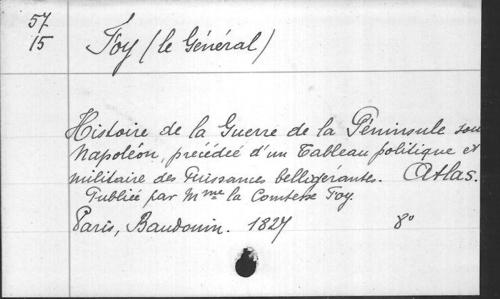 57
15
Foy (le Général)
Histoire de la Guerre de la Péninsule sous
Napoléon, précédée d'un Tableau politique et
militaire des Puissances belligérantes. Atlas.
Publiée par Mme la Comtesse Foy.
Paris, Baudouin. 1827 8°